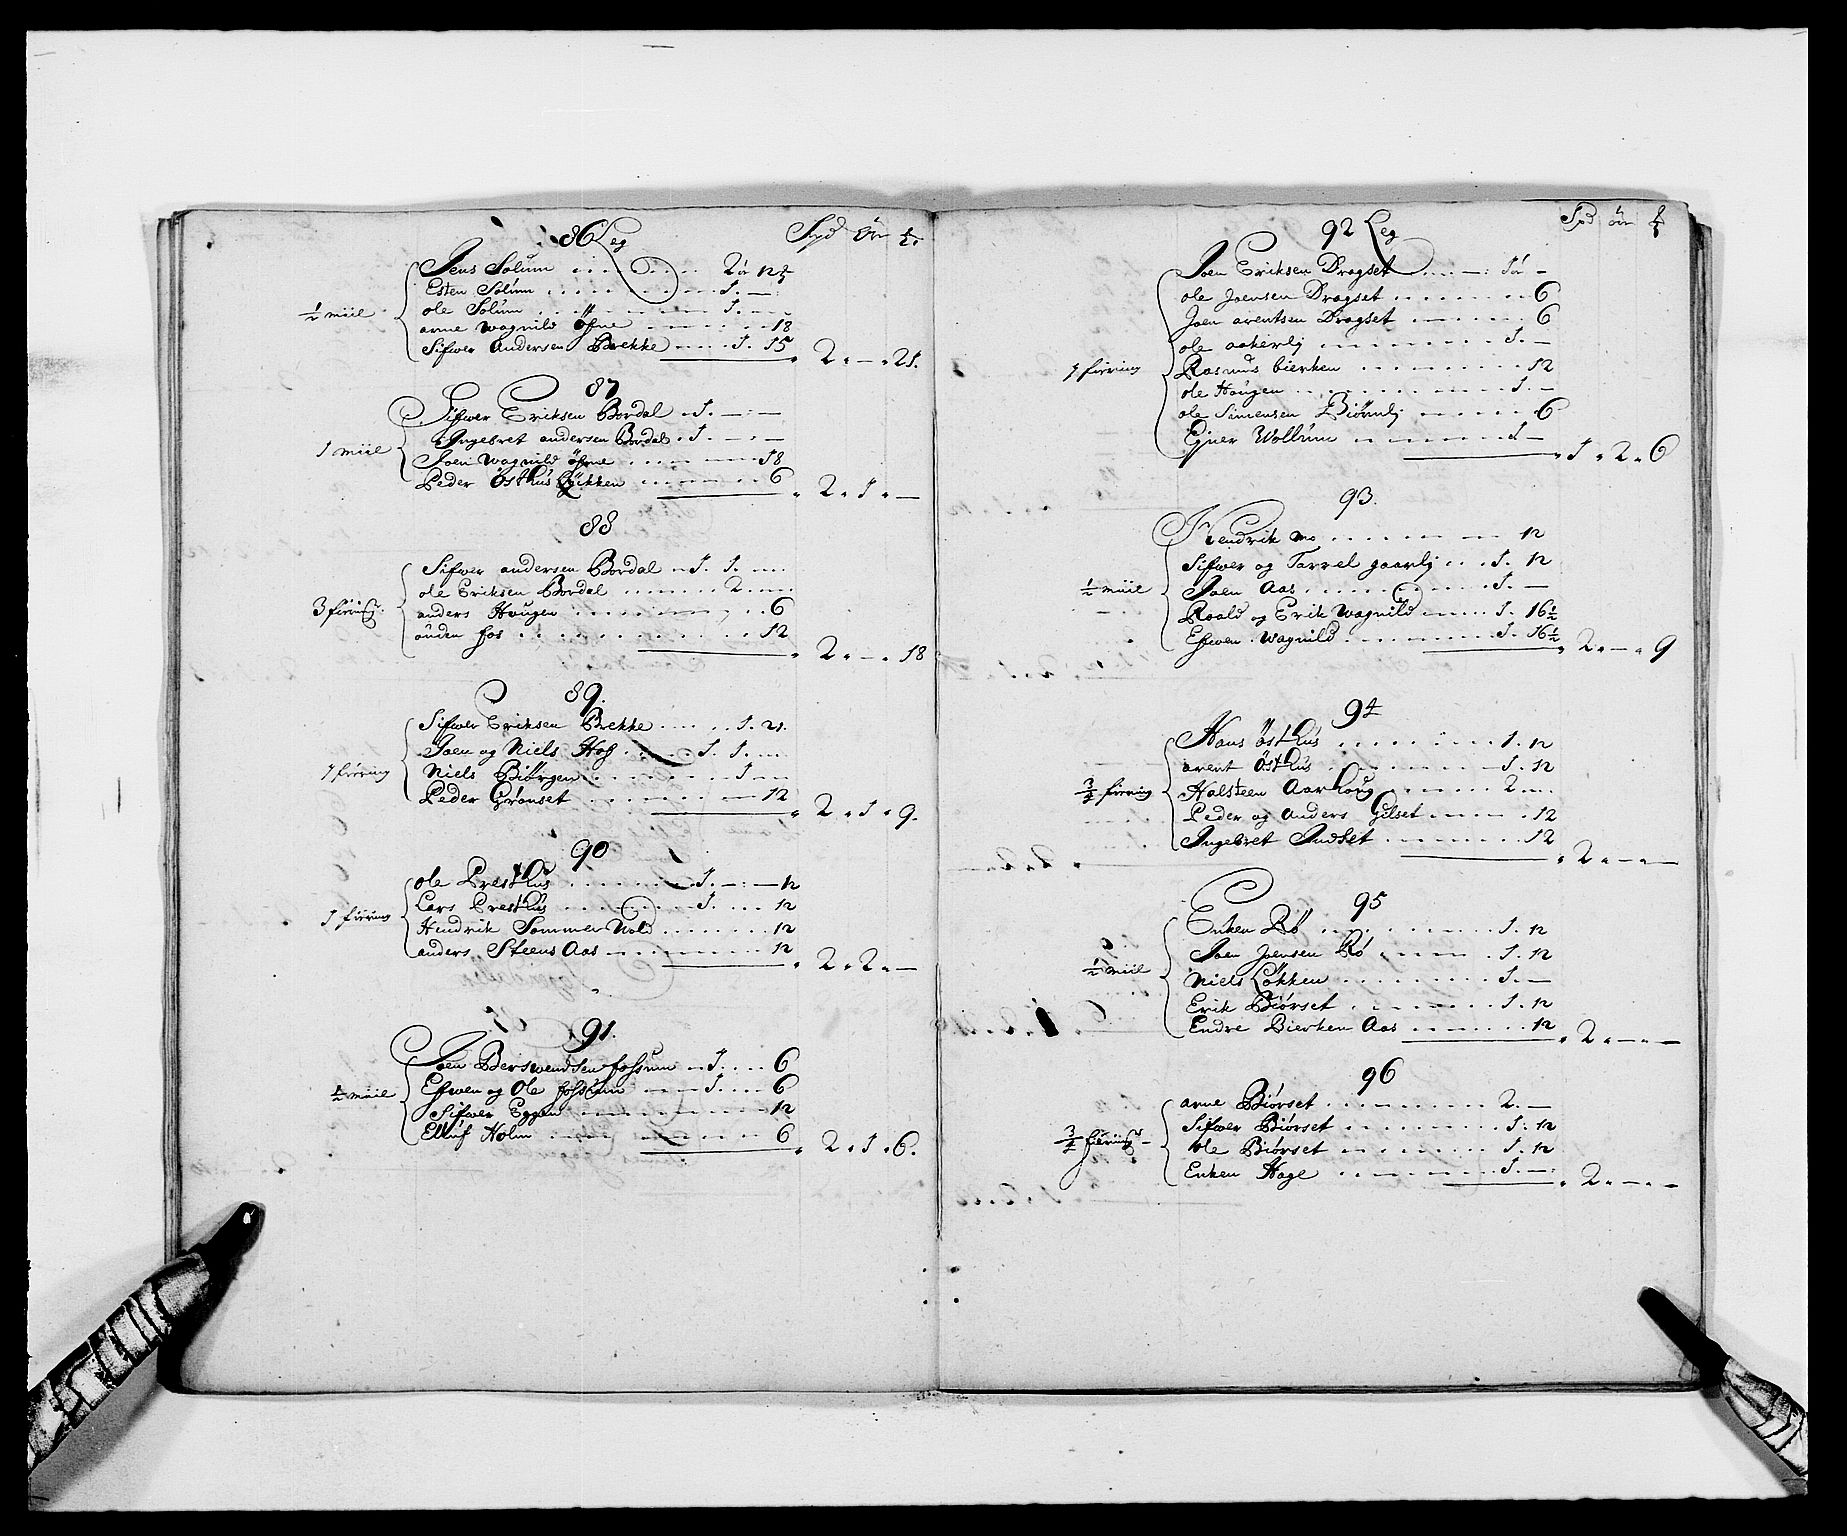 86 Leg Spd ör
Jens Solum 2 ör 12
Esten Solum 1. —
½ miil ole Solum 1. —
arne Wagnild öfne 18
Sifwer Andersen Brekke 1. 15 2 — 21.
87
Sifwer Eriksen Bordal 1. —
Ingebret andersen Bordal 1. —
1 miil Joen Wagnild öfne 18
Peder östhus Löikken 6 2 1 —
88
Sifwer andersen Bordal 1. 1. —
ole Eriksen Bordal 2. —
3 anders Haugen 6
auden fos 12 2 — 18
89.
Sifwer Eriksen Brekke 1. 21.
Joen og Niels Hof 1. 1. —
1 fiering Niels Biörgen 1 —
Peder Grönset 12 2 1 9.
90
ole Presthus 1. — 12
Lars Presthus 1. 12
1 fiering Hendrik Sommer Vold 12
anders Steens Aas 12 2 2 —
91.
Joen Berswendsen fossum 1. 6
½ miil Efwen og Ole fossum 1. 6
Sifwer Eggen 12
Elluf Holm 6 2 1 6.
92 Leg Spd ör
Joen Eriksen Dragset 1 ör —
ole Joensen Dragset 6
Joen arentsen Dragset 6
ole aakerlj 1. —
1 fiering Rasmus bierken 12
ole Haugen 1. —
ole Simensen Biörnlj 6
Ejner Wollum 1 — 1 2 6
93.
Hendrik mo 12
Sifwer og Tarrel gaarlj 1. 12
½ miil Joen Aas 1. —
Roald og Erik Wagnild 1. 16½
Efwen Wagnild 1. 16½ 2 — 9
94
Hans östhus 1. 12
arent östhus 1. 12
¾ fiering Halsteen Aarhoug 2 —
Peder og Anders Gilset 12
Ingebret Indset 12 2 — —
95
Enken Rö 1. 12
Joen Joensen Rö 1. 12
½ miil Niels Lökken 1. —
Erik Biörset 1. 12
Endre Bierken Aas 12 2 — —
96
arne Biörset 2. —
Sifwer Biörset 1. 12
¾ ole Biörset 1. 12
Enken Hage 1. — 2 — —